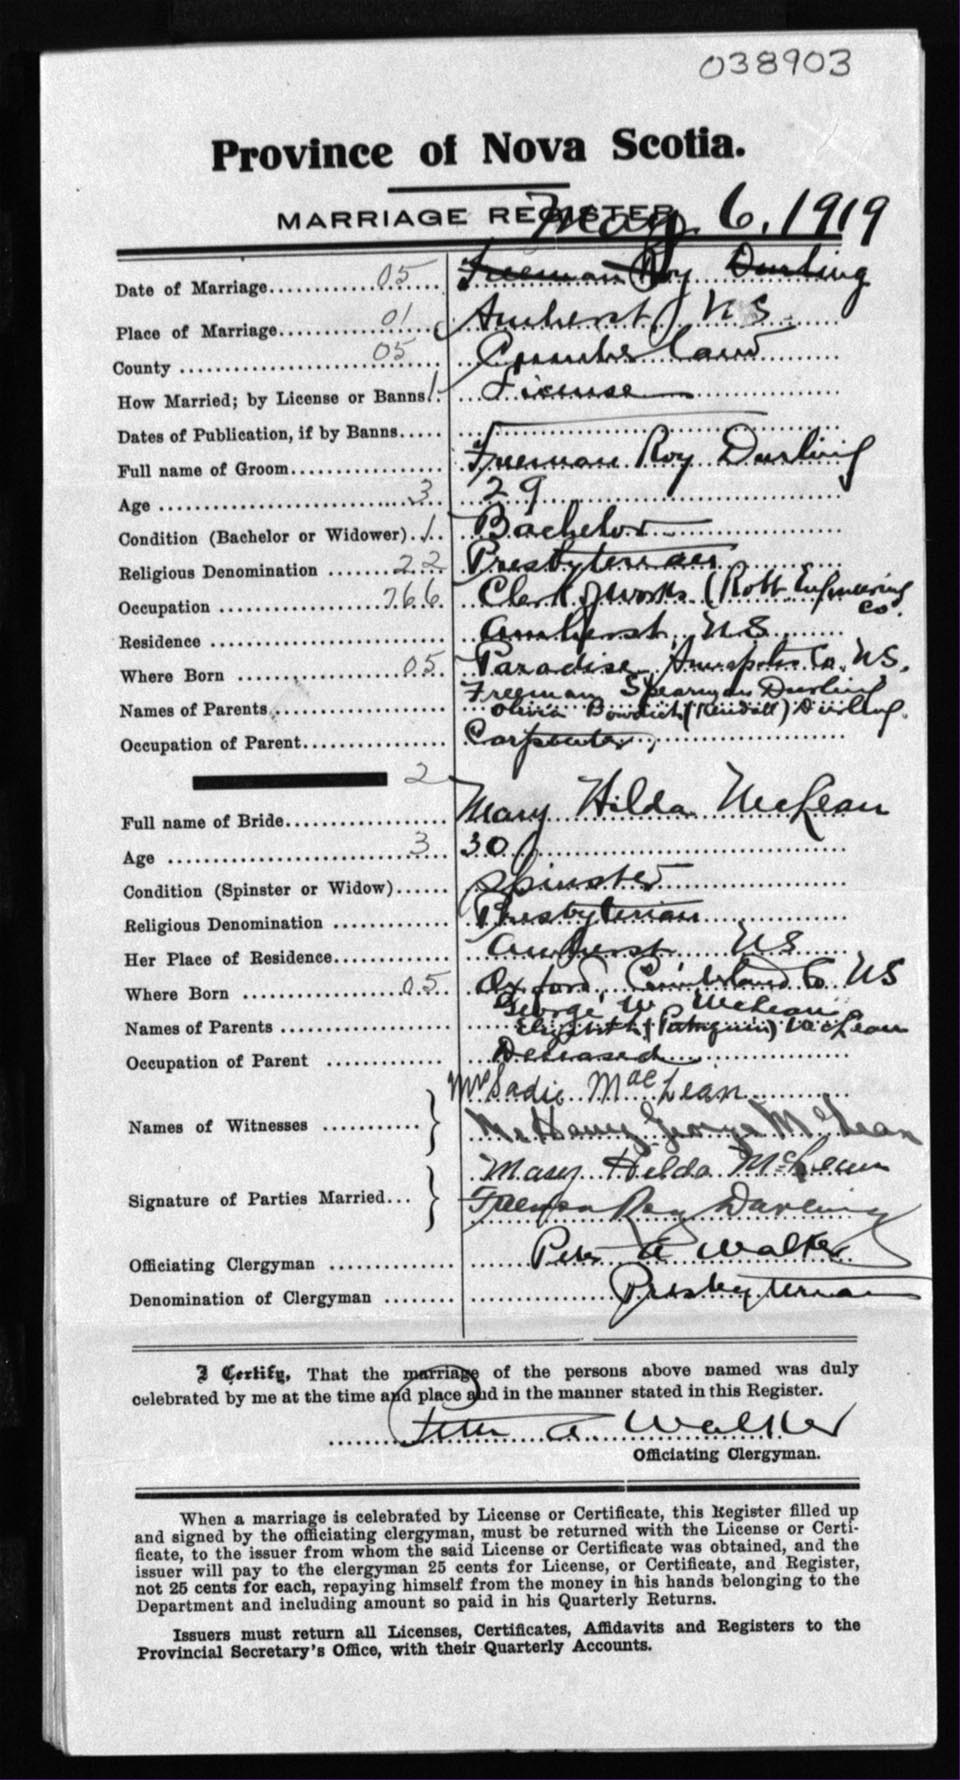 038903
Province of Nova Scotia.
MARRIAGE REGISTER May 6, 1919
Date of Marriage 05 Freeman Roy Durling
Place of Marriage 01 Amherst, N S
County 05 Cumberland
How Married; by License or Banns 1 License
Dates of Publication, if by Banns
Full name of Groom Freeman Roy Durling
Age 3 29
Condition (Bachelor or Widower) 1 Bachelor
Religious Denomination 22 Presbyterian
Occupation 766 Clerk of Works (Robb Engineering Co.
Residence Amherst, N.S
Where Born 05 Paradise Annapolis Co. N.S.
Names of Parents Freeman Spearman Durling
Olivia Bowdich (Kendall) Durling
Occupation of Parent Carpenter
2
Full name of Bride Mary Hilda McLean
Age 3 30
Condition (Spinster or Widow) Spinster
Religious Denomination Presbyterian
Her Place of Residence Amherst N S
Where Born 05 Oxford, Cumberland Co NS
Names of Parents George W McLean
Elizabeth McLean
Occupation of Parent Deceased
Names of Witnesses Mrs Sadie MacLean
George McLean
Signature of Parties Married... Mary Hilda McLean
Freeman Roy Durling
Officiating Clergyman Peter A Walker
Denomination of Clergyman Presbyterian
I Certify, That the marriage of the persons above named was duly
celebrated by me at the time and place and in the manner stated in this Register.
Peter A Walker
Officiating Clergyman.
When a marriage is celebrated by License or Certificate, this Register filled up
and signed by the officiating clergyman, must be returned with the License or Certi-
ficate, to the issuer from whom the said License or Certificate was obtained, and the
issuer will pay to the clergyman 25 cents for License, or Certificate, and Register,
not 25 cents for each, repaying himself from the money in his hands belonging to the
Department and including amount so paid in his Quarterly Returns.
Issuers must return all Licenses, Certificates, Affidavits and Registers to the
Provincial Secretary's Office, with their Quarterly Accounts.